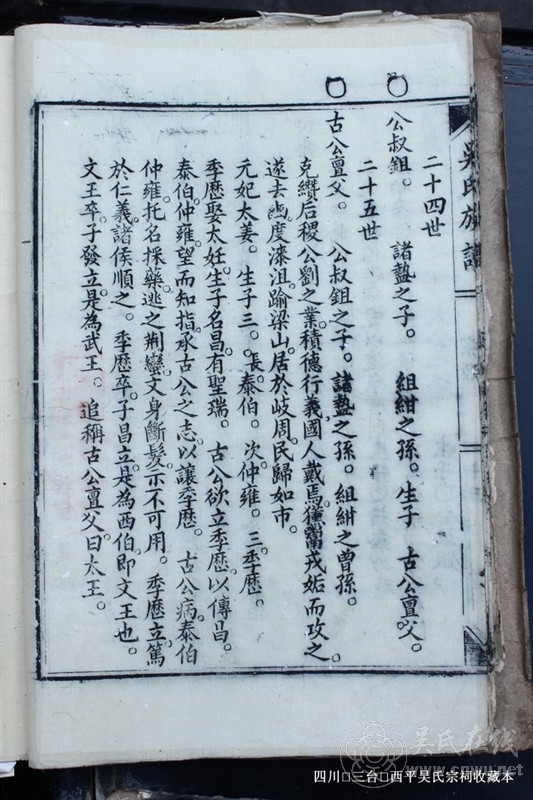 吳氏族譜
二十四世
公叔鉏。 諸盩之子。 組紺之孫。生子 古公亶父。
二十五世
古公亶父。 公叔鉏之子。諸盩之孫。組紺之曾孫。
克纘后稷公劉之業。積德行義。國人戴焉。獯鬻戎姤而攻之。
遂去豳。度漆沮。踰梁山。居於岐周。民歸如市。
元妃太姜。生子三。長泰伯。次仲雍。三季歷。
季歷娶太妊。生子名昌。有聖瑞。古公欲立季歷。以傳昌。
泰伯。仲雍。望而知指。承古公之志。以讓季歷。古公病。泰伯
仲雍。托名採藥。逃之荆蠻。文身斷髮。示不可用。季歷立。篤
於仁義。諸侯順之。季歷卒。子昌立。是為西伯。即文王也。
文王卒。子發立。是為武王。追稱古公亶父。曰太王。
吴氏在线
www.cnwu.net
四川□三台□西平吴氏宗祠收藏本